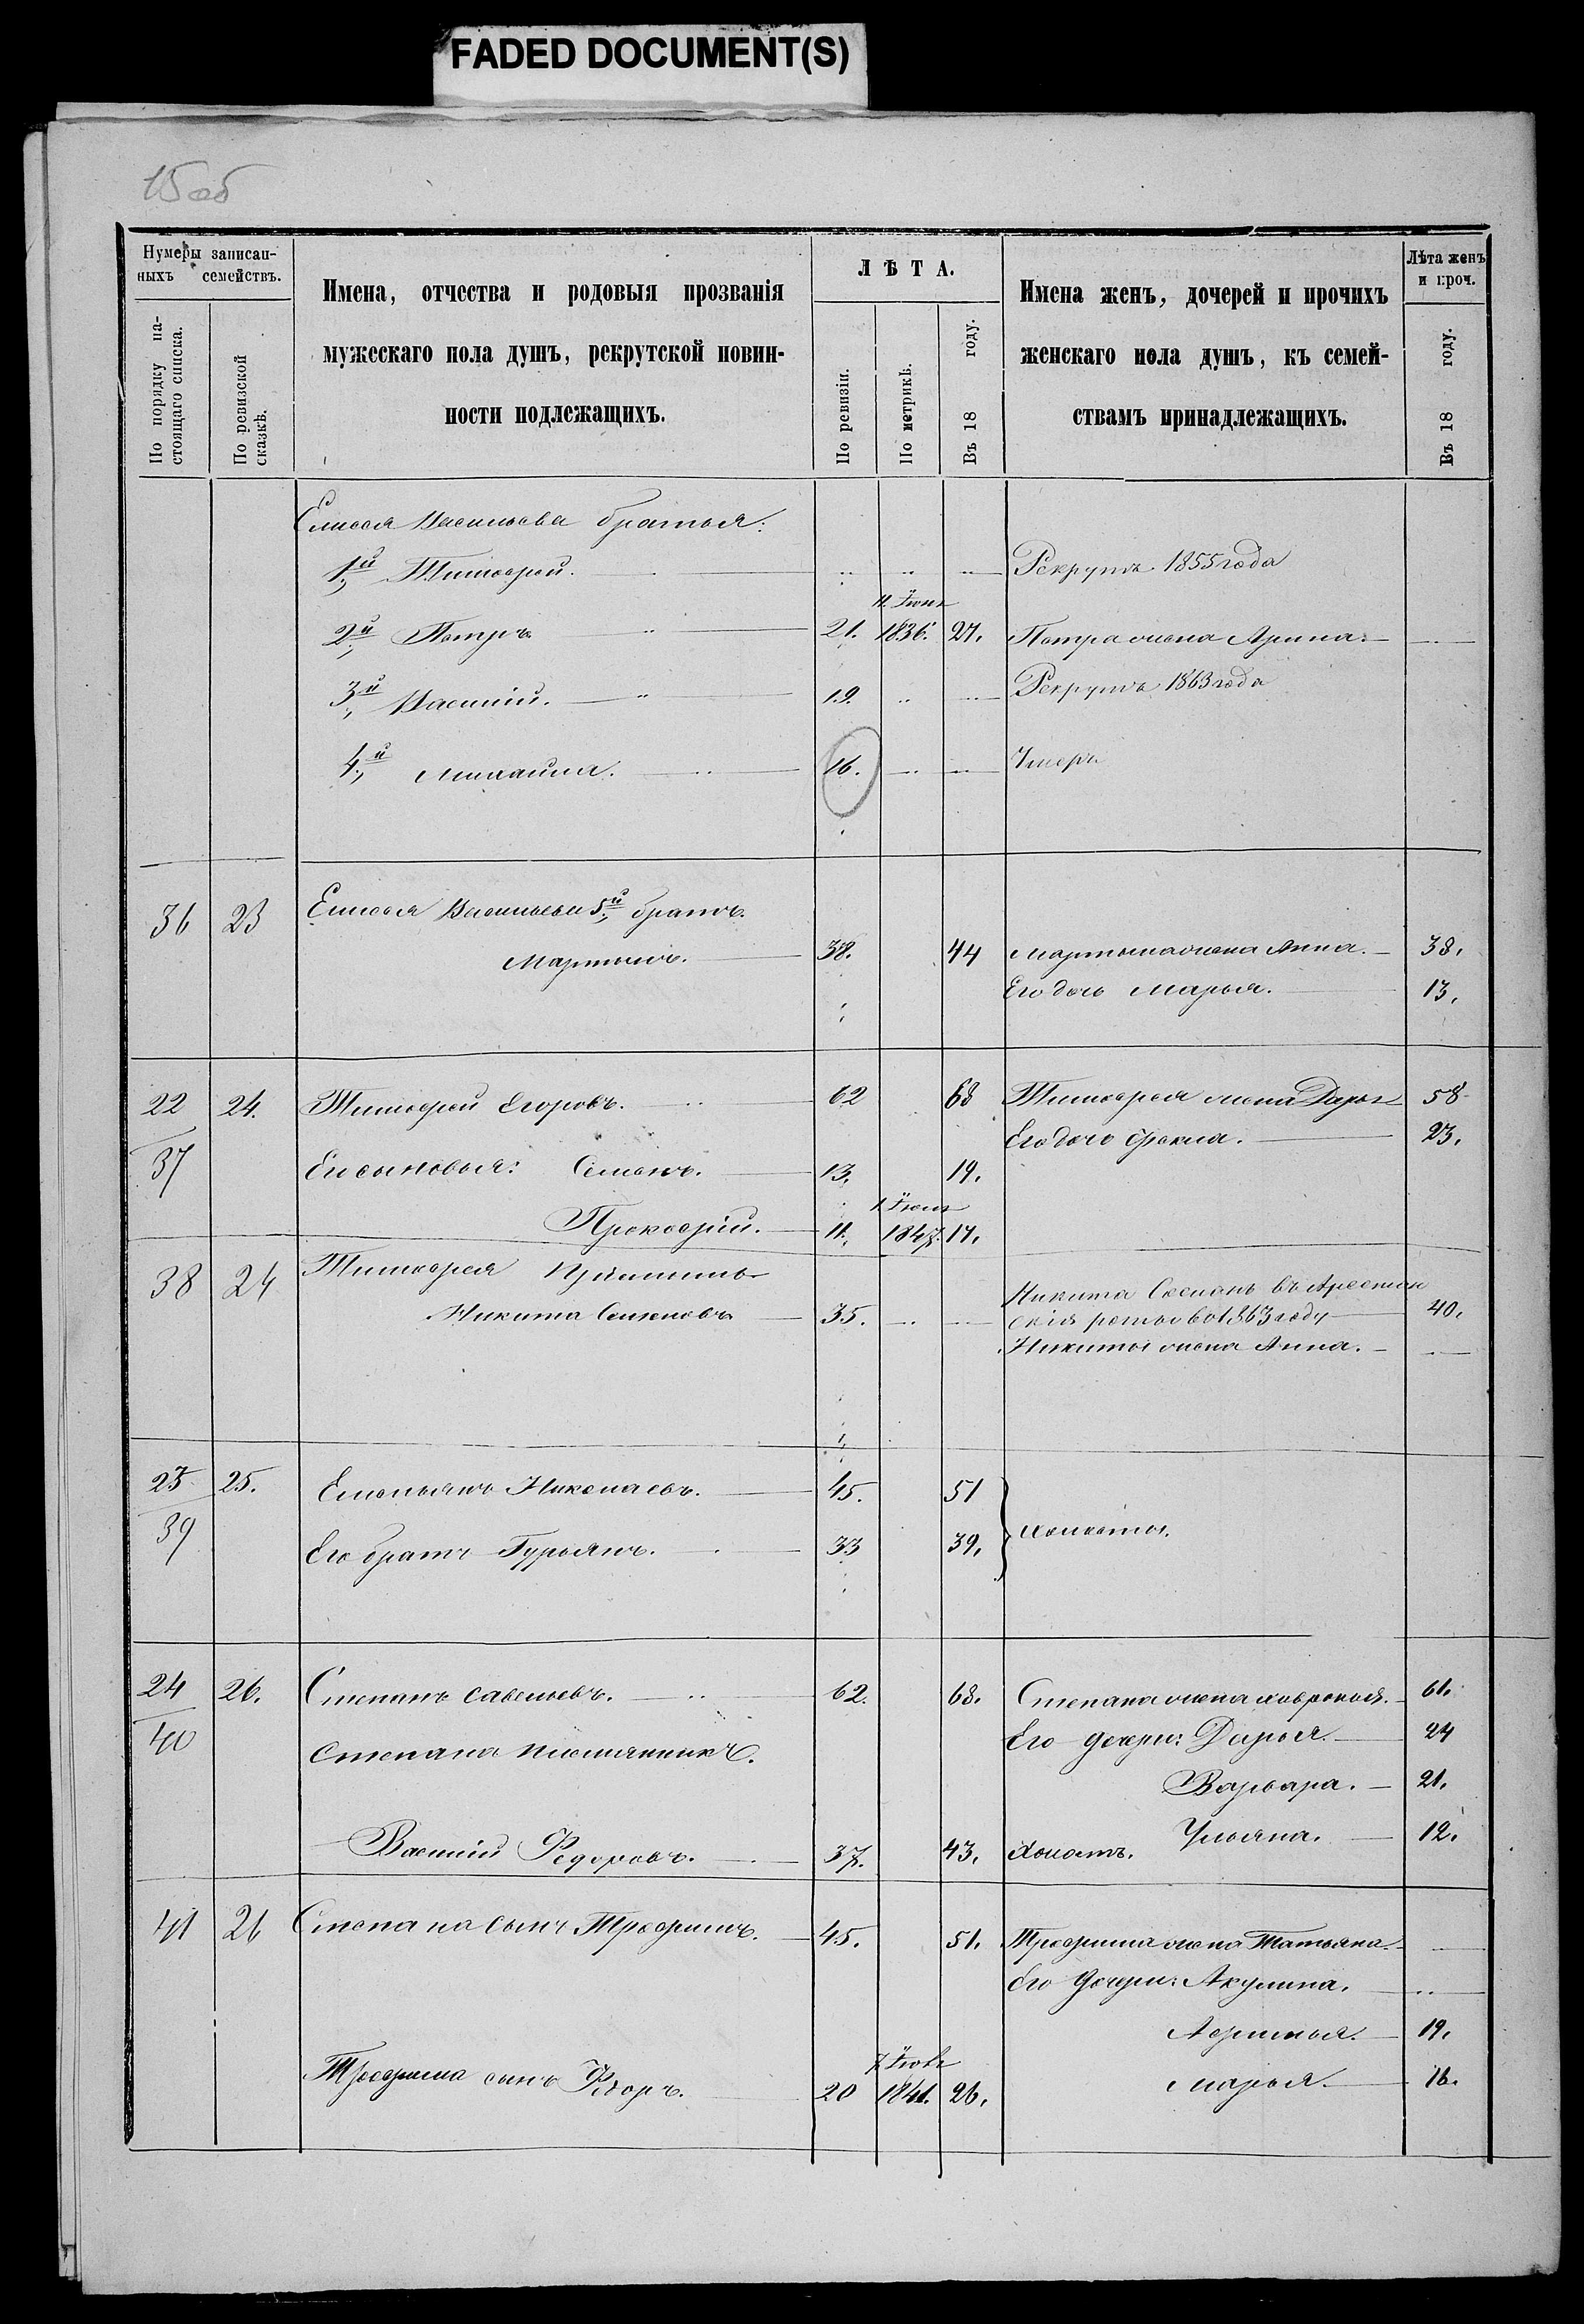 FADED DOCUMENT(S)
15об
Нумеры записан-
ныхъ семействъ.
По порядку на-
стоящаго списка.
По ревизской
сказкѣ.
Имена, отчества и родовыя прозванія
мужескаго пола душъ, рекрутской повин-
ности подлежащихъ.
ЛѢТА.
По ревизіи.
По метрикѣ.
Въ 18 году.
Имена женъ, дочерей и прочихъ
женскаго пола душъ, къ семей-
ствамъ принадлежащихъ.
Лѣта женъ
и проч.
Въ 18 году.
Елисея Васильева братья:
1й Тимофей. Рекрутъ 1855 года
11. Іюня
2й Петръ 21. 1836. 27. Петра жена Арина.
3й Василій. 19. Рекрутъ 1863 года
4й Михайла. 16. Умеръ
36 23 Елисея Васильева 5й братъ
Мартынъ. 38. 44 Мартына жена Анна. 38.
Его дочь Марья. 13.
22 24. Тимофей Егоровъ. 62 68 Тимофея жена Дарья 58
Его дочь Фекла. 23.
37 Его сыновья: Семенъ. 13. 19.
1 Іюля
Прокофій. 11. 1847. 17.
38 24 Тимофея Пріимышъ
Никита Семеновъ 35. Никита Сосланъ въ Арестан
скія роты во 1863 году 40.
Никиты жена Анна.
23 25. Емельянъ Николаевъ. 45. 51
холосты.
39 Его братъ Гурьянъ. 33 39.
24 26. Степанъ Савельевъ. 62. 68. Степана жена Хавронья. 61.
40 Степана племянникъ. Его дочери: Дарья. 24
Варвара. 21.
Ульяна. 12.
Василій Федоровъ. 37. 43. Холостъ.
41 26 Степана сынъ Трофимъ. 45. 51. Трофима жена Татьяна.
Его дочери: Акулина.
Афимья. 19.
7 Іюня
Трофима сынъ Федоръ. 20 1841. 26. Марья. 16.